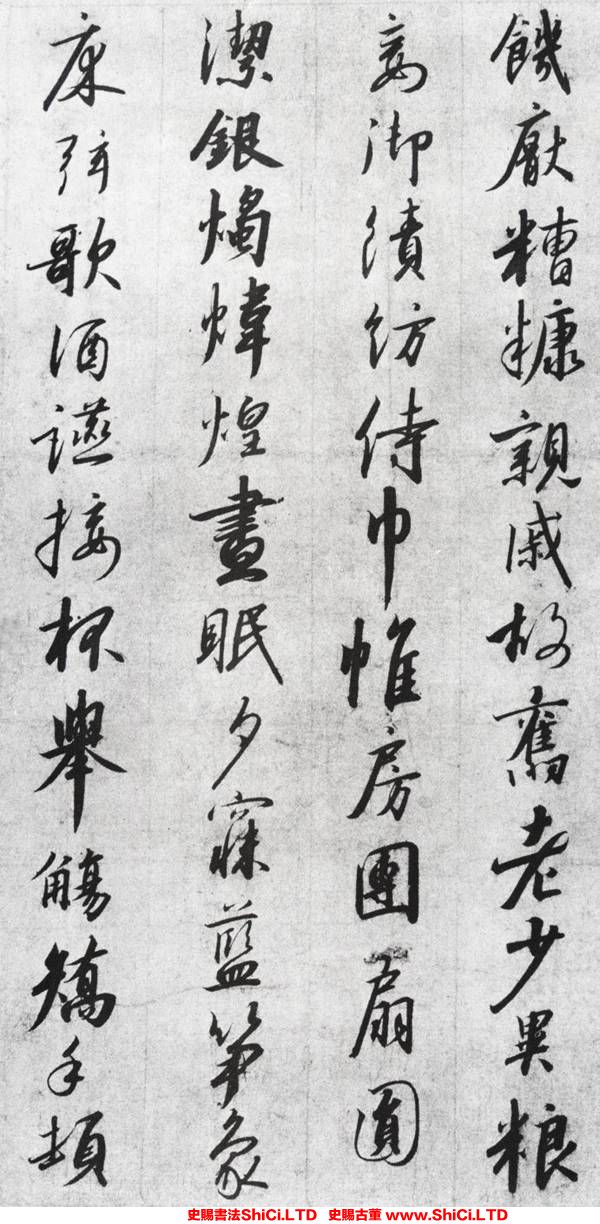 饑厭糟糠親戚故舊老少異粮
妾御績紡侍巾帷房團扇圓
潔銀燭煒煌晝眠夕寐藍笋象
床弦歌酒讌接杯舉觴矯手頓
史賜書法ShiCi.LTD 史賜古董 www.ShiCi.LTD